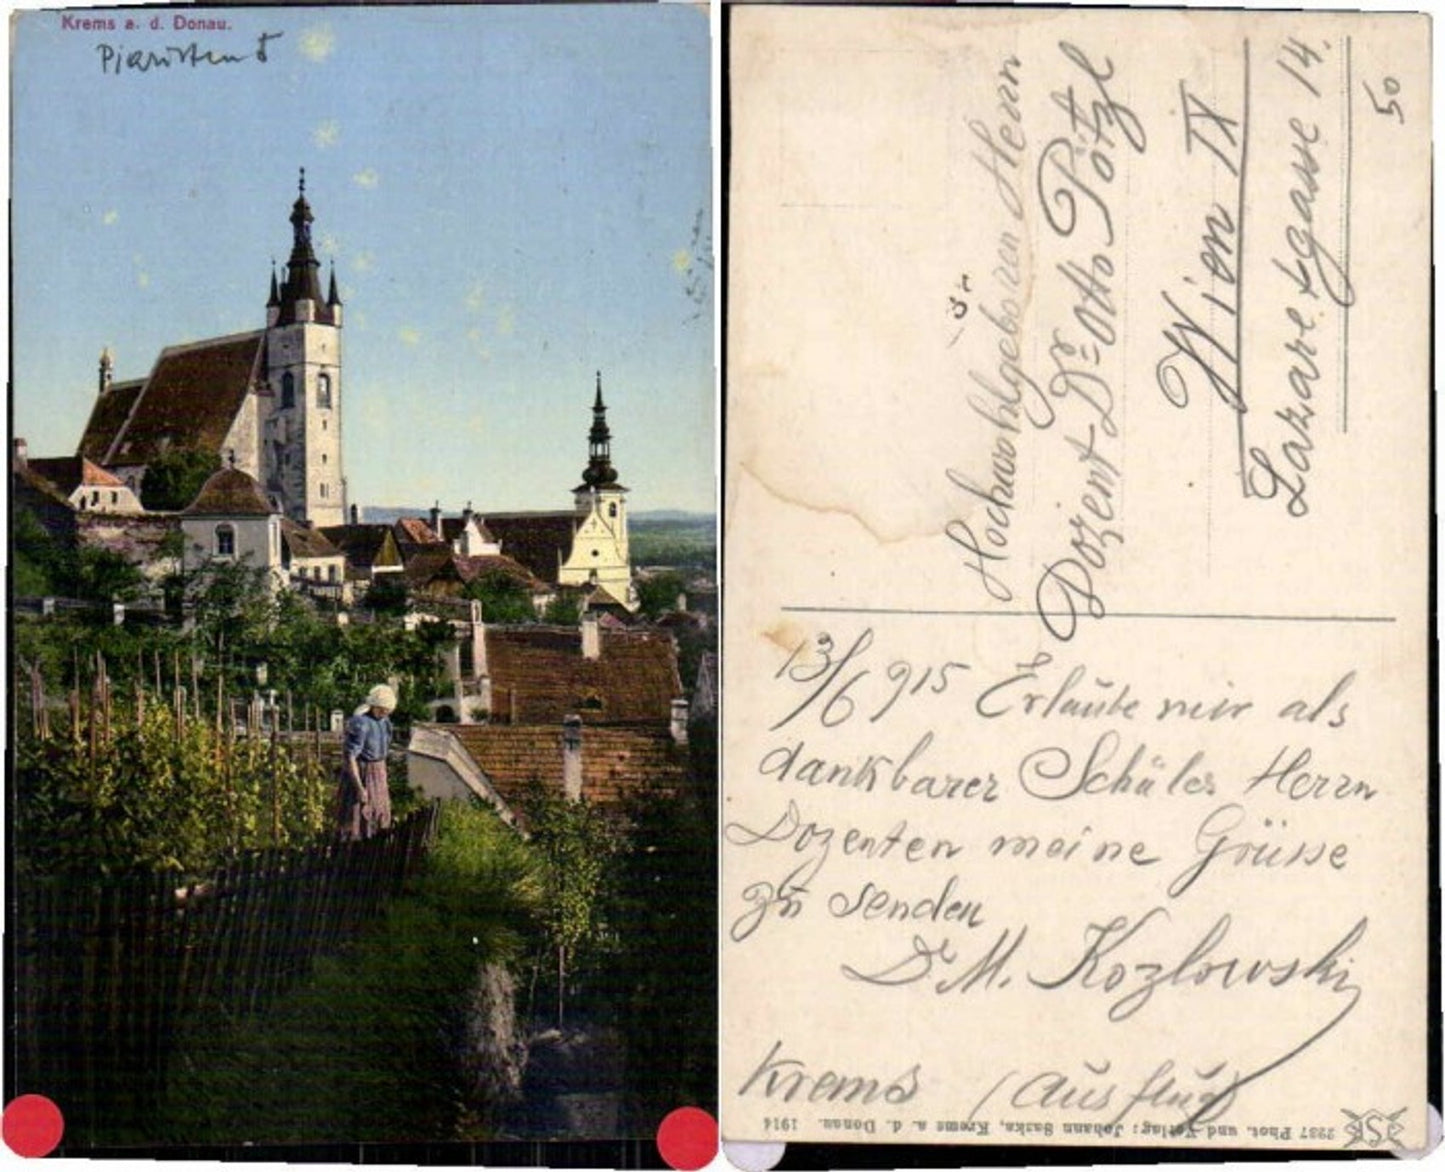 Krems a. d. Donau.
Piaristen
Hochwohlgeboren Herrn
Dozent Dr Otto Pötzl
Wien IX
Lazarettgasse 14.
50
13/6 915 Erlaube mir als
dankbarer Schüler Herrn
Dozenten meine Grüsse
zu senden
Dr M. Kozlowski
Krems (Ausflug)
2237 Phot. und Verlag: Johann Saska, Krems a. d. Donau. 1914